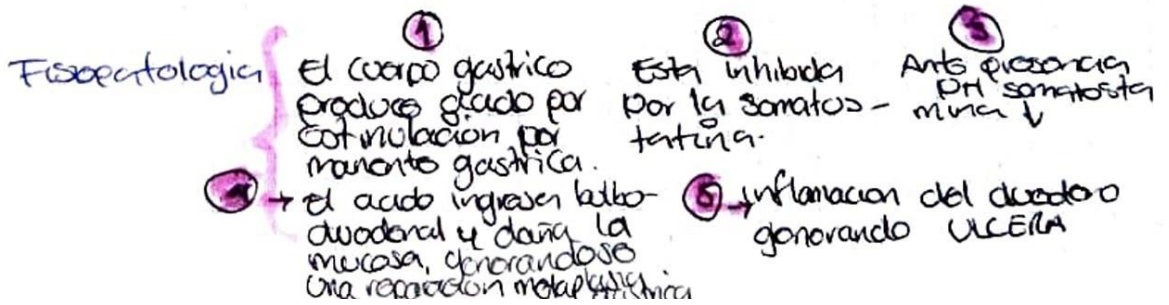 Fisiopatologia
①
El cuerpo gastrico
produce acido por
estimulacion por
gastrica.
②
Esta inhibida
por la somatos-
tatina.
③
Ante presencia
PH somatosta
mina ↓
④ → el acido ingresa en bulbo
duodenal y daña la
mucosa, generandose
una reparacion metaplasica
gastrica
⑤ → Inflamacion del duodeno
generando ULCERA